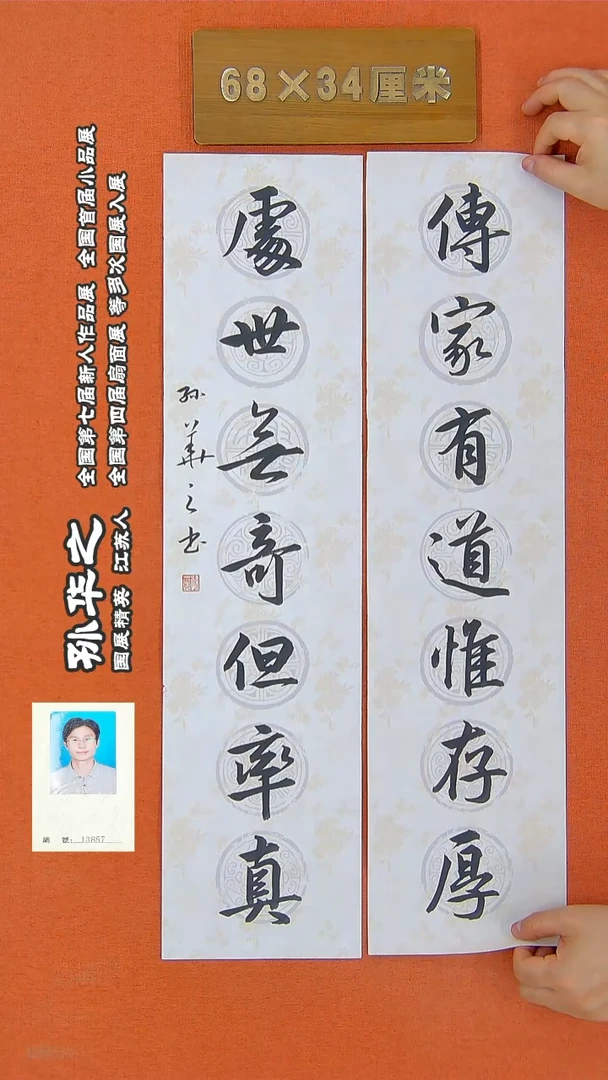 68×34厘米
傳家有道惟存厚
處世無奇但率真
孙華之书
孙华之
国展精英 江苏人
全国第七届新人作品展 全国首届小品展
全国第四届扇面展 等多次国展入展
編 號: 13857